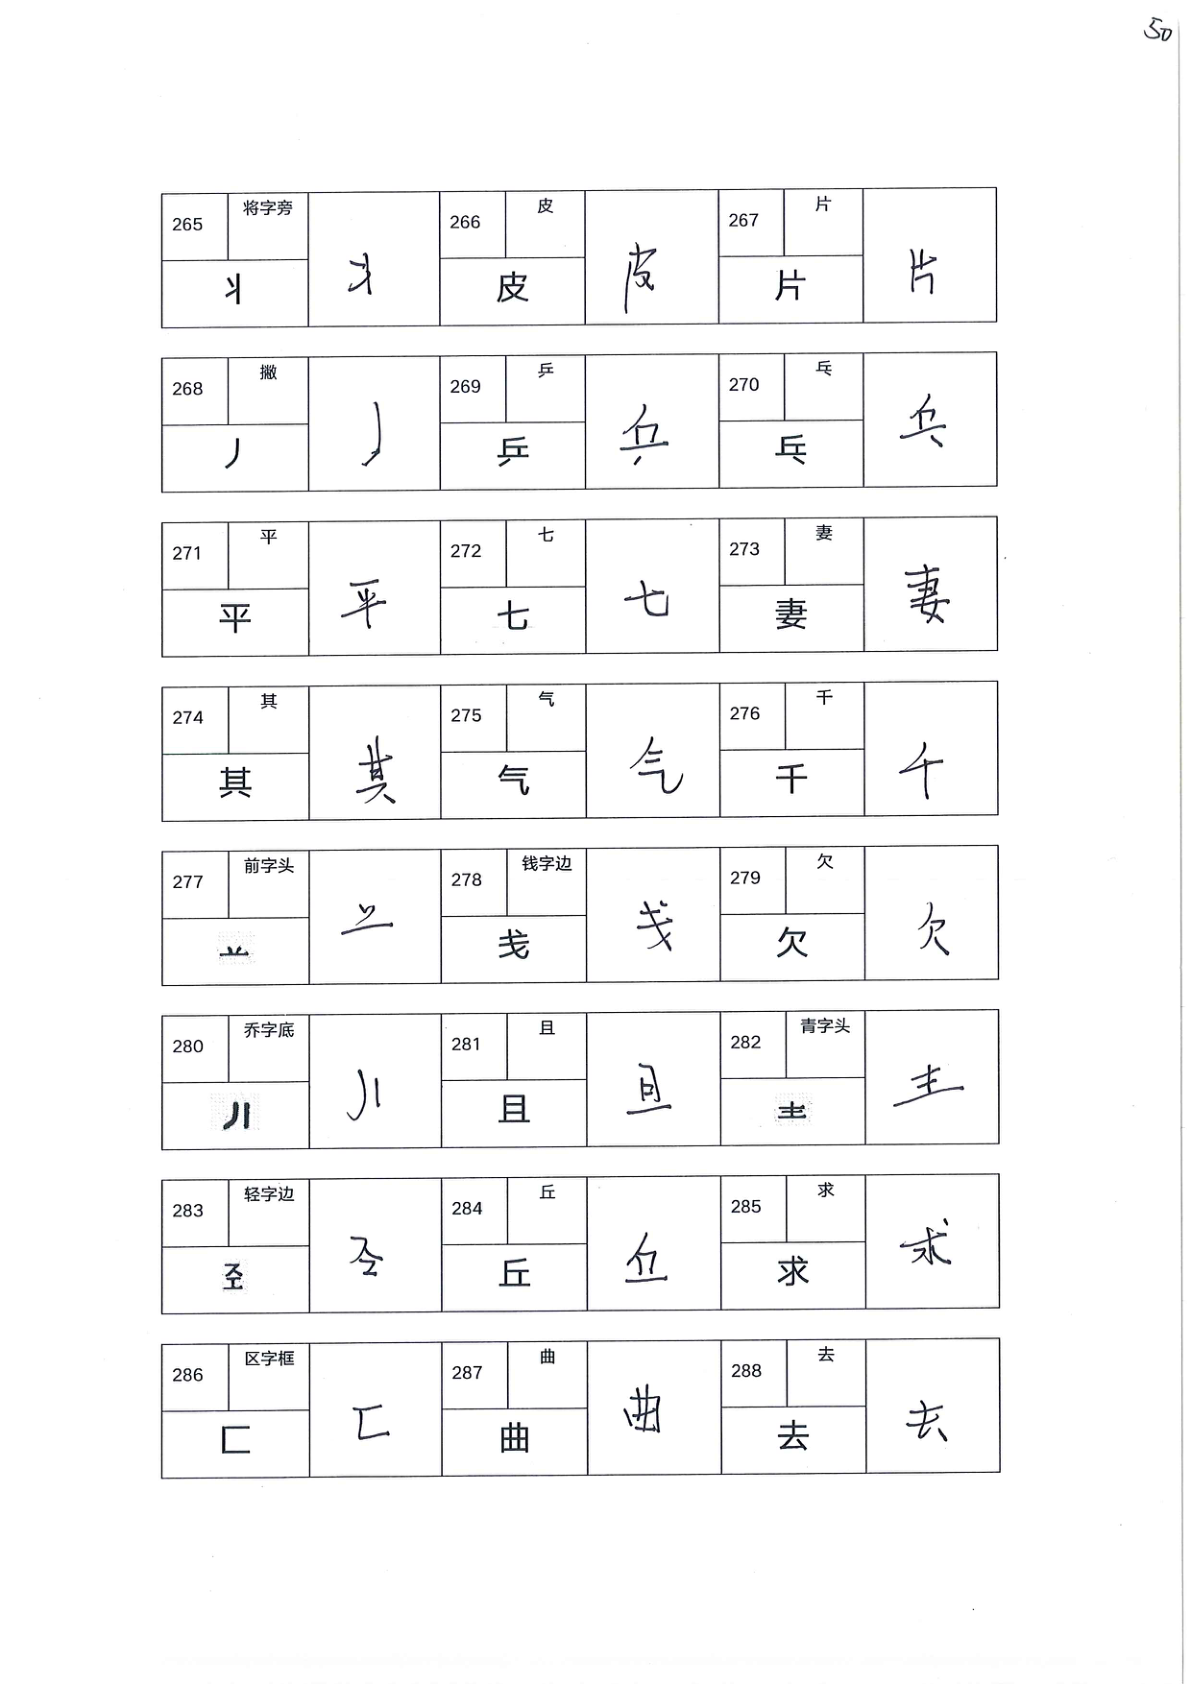 50
265 将字旁 丬 丬 266 皮 皮 皮 267 片 片 片
268 撇 丿 丿 269 乒 乒 乒 270 乓 乓 乓
271 平 平 平 272 七 七 七 273 妻 妻 妻
274 其 其 其 275 气 气 气 276 千 千 千
277 前字头 䒑 䒑 278 钱字边 戋 戋 279 欠 欠 欠
280 乔字底 丿丨 丿丨 281 且 且 且 282 青字头 龶 龶
283 轻字边 𢀖 𢀖 284 丘 丘 丘 285 求 求 求
286 区字框 匚 匚 287 曲 曲 曲 288 去 去 去